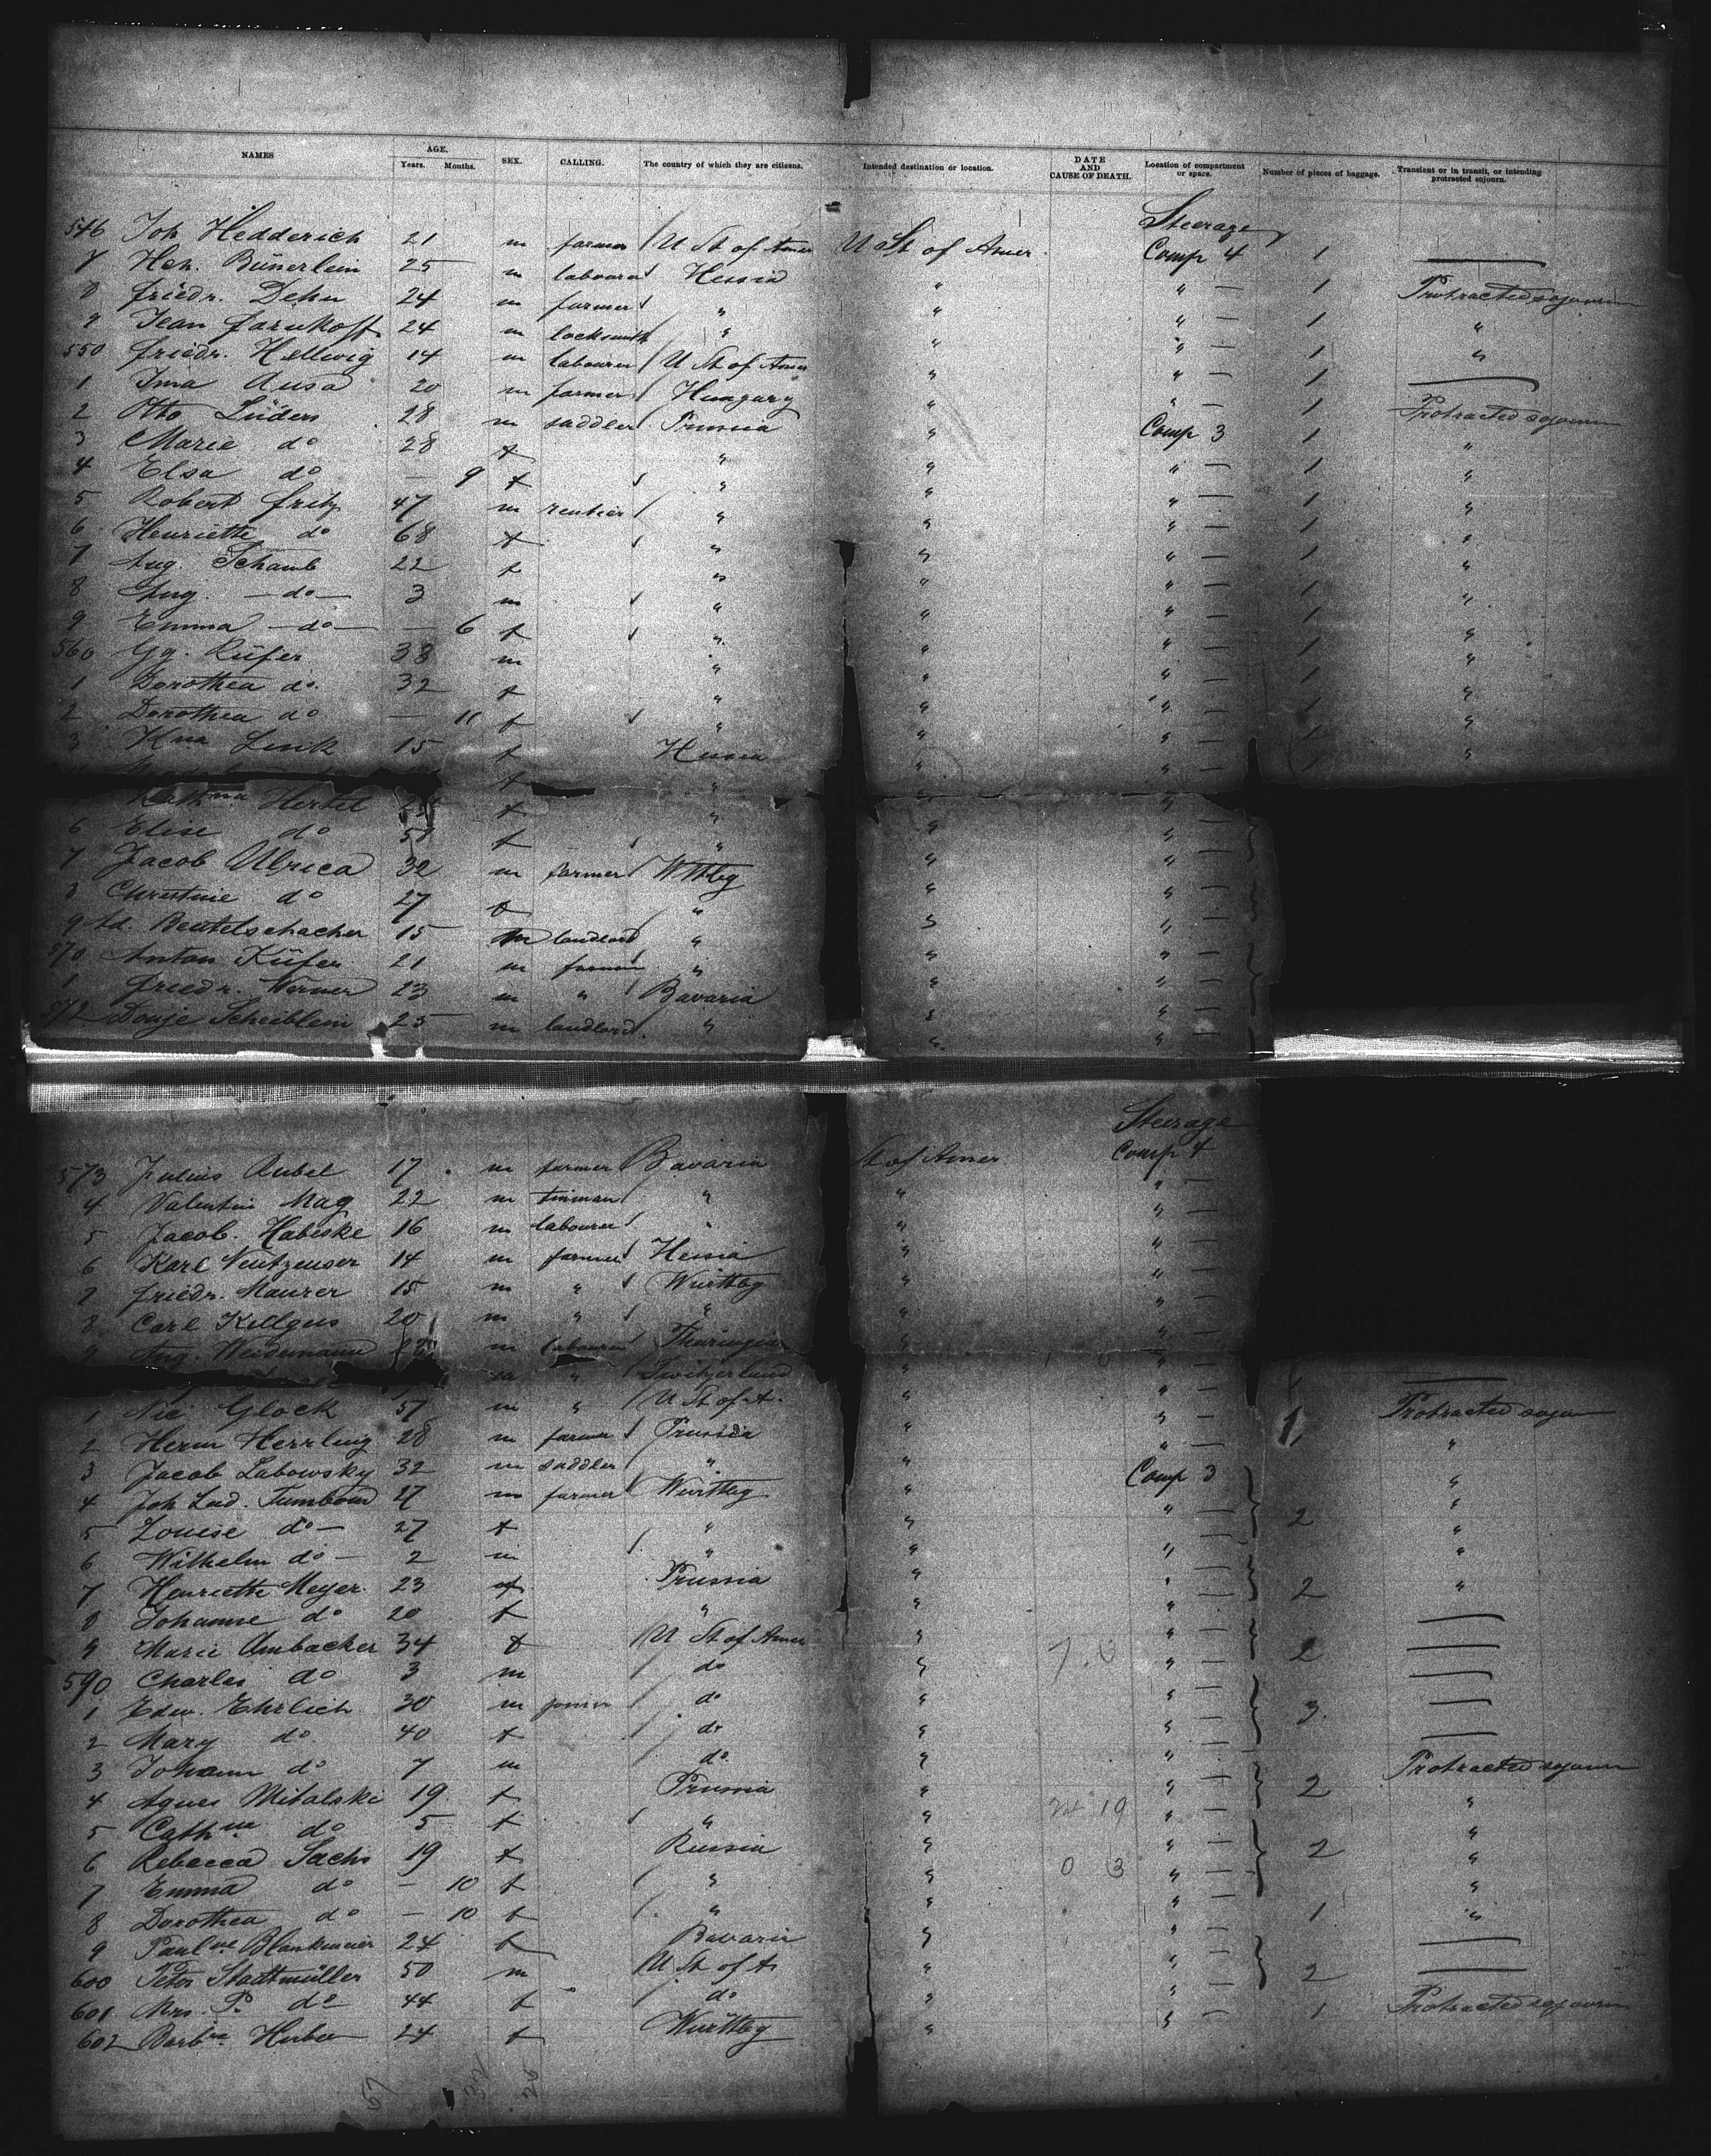 NAMES AGE. Years. Months. SEX. CALLING. The country of which they are citizens. Intended destination or location. DATE AND CAUSE OF DEATH. Location of compartment or space. Number of pieces of baggage. Transient or in transit, or intending protracted sojourn.
Steerage
546 Joh Hedderich 21 m farmer U St of Amer U St of Amer Comp 4 1 —
7 Hch. Bünerlein 25 m labourer Hessia " " — 1 Protracted sojourn
8 Friedr. Dehn 24 m farmer " " " — 1 "
9 Jean 24 m locksmith " " " — 1 "
550 Friedr. Hellwig 14 m labourer U St of Amer " " — 1 —
1 Ima Ausa 20 m farmer Hungary " " — 1 Protracted sojourn
2 Otto Lüders 28 m saddler Prussia " Comp 3 1 "
3 Marie do 28 f " " " — 1 "
4 Elsa do — 9 f " " " — 1 "
5 Robert Fritz 47 m rentier " " " — 1 "
6 Henriette do 68 f " " " — 1 "
7 Aug. Schaub 22 f " " " — 1 "
8 Aug. — do — 3 m " " " — 1 "
9 Emma — do — — 6 f " " " — 1 "
560 Gg. Küfer 38 m " " " — 1 "
1 Dorothea do. 32 f " " " — 1 "
2 Dorothea do — 11 f " " " — 1 "
3 Kna Link 15 f Hessia " " — 1 "
f " "
Kathna Hertel f " " "
6 Elise do 57 f " " " —
7 Jacob Ulrica 32 m farmer Wttbg " " —
8 Christine do 27 f " " " —
9 Ad. Beutelschacher 15 m landlord " " "
570 Anton Küfer 21 m farmer " " " —
1 Friedr. Werner 23 m " Bavaria " " —
572 Scheiblein 25 m landlord " " " —
Steerage
573 Julius Rubel 17 m farmer Bavaria St of Amer Comp 4
4 Valentin May 22 m tinman " " " —
5 Jacob. Habeske 16 m labourer " " " —
6 Karl Neutzenser 14 m farmer Hessia " "
7 Friedr. Maurer 15 m " Württbg " " —
8 Carl Killgus 20 m " " " " —
9 Aug. Weidemann m labourer Thuringen " " —
m " Switzerland " " — —
1 Nic Glock 57 m " U St of A. " " — 1 Protracted sojourn
2 Herm Herrling 28 m farmer Prussia " " — "
3 Jacob Labowsky 32 m saddler " " Comp 3 "
4 Joh Lud. 27 m farmer Württbg " " — 2 "
5 Louise do — 27 f " " " — "
6 Wilhelm do — 2 m " " " — "
7 Henriette Meyer. 23 f Prussia " " — 2 "
8 Johanne do 20 f " " " — —
9 Marie Ambacker 34 f U St of Amer " " — 2 —
590 Charles do 3 m do " " — —
1 Edw. Ehrlich 30 m do " " — 3 —
2 Mary do 40 f do " " — —
3 Johann do 7 m do " " — Protracted sojourn
4 Agnes Mitalski 19 f Prussia " " — 2 "
5 Cathna do 5 f " " 24 19 " — "
6 Rebecca Sachs 19 f Russia " " — 2 "
7 Emma do — 10 f " " 0 3 " — "
8 Dorothea do — 10 f " " " — 1 "
9 Paulne Blankmeier 24 f Bavaria " " — —
600 Peter Stadtmüller 50 m U St of A " " — 2 —
601 Mrs. P. do 44 f do " " — 1 Protracted sojourn
602 Barbra Huber 24 f Württbg " " —
57 32 25